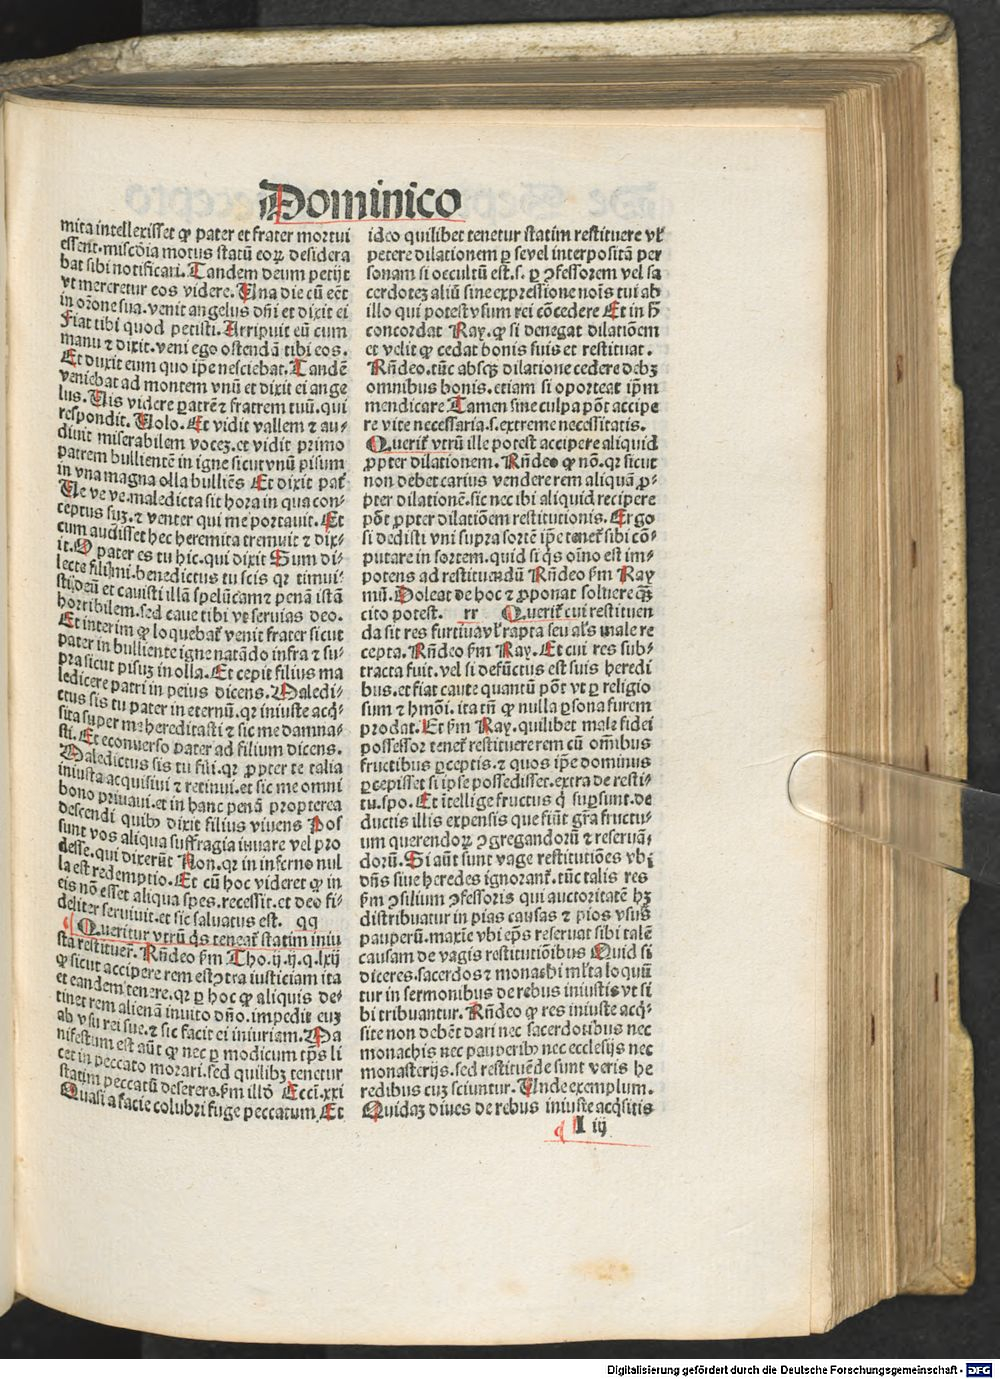 Dominico
mita intellexisset ꝙ pater et frater mortui
essent.miscdia motus statū eoꝝ desidera
bat sibi notificari.Tandem deum petijt
vt mereretur eos videre.Una die cū eēt
in orōne sua.venit angelus dn̄i et dixit ei
Fiat tibi quod petisti.Arripuit eū cum
manu ⁊ dixit.veni ego ostendā tibi eos.
Et duxit eum quo ip̄e nesciebat.Tandē
veniebat ad montem vnū et dixit ei ange
lus.Uis videre patrē ⁊ fratrem tuū.qui
respondit.Uolo.Et vidit vallem ⁊ au⸗
diuit miserabilem vocez.et vidit primo
patrem bullientē in igne sicut vnū pisum
in vna magna olla bulliēs Et dixit pat᷑
Ue ve ve.maledicta sit hora in qua con⸗
ceptus suꝫ.⁊ venter qui me portauit.Et
cum audisset hec heremita tremuit ⁊ dix⸗
it.O pater es tu hic.qui dixit Sum di⸗
lecte fili mi.benedictus tu scis qꝛ timui⸗
sti deū et cauisti illā speluncam ⁊ penā istā
horribilem.sed caue tibi vt seruias deo.
Et interim ꝙ loquebat᷑ venit frater sicut
pater in bulliente igne natādo infra ⁊ su⸗
pra sicut pisuꝫ in olla.Et cepit filius ma
ledicere patri in peius dicens.Maledi⸗
ctus sis tu pater in eternū.qꝛ iniuste acq̄⸗
sita super me hereditasti ⁊ sic me damna⸗
sti.Et econuerso pater ad filium dicens.
Maledictus sis tu fili.qꝛ ꝓpter te talia
iniusta acquisiui ⁊ retinui.et sic me omni
bono priuaui.et in hanc penā propterea
descendi quibꝰ dixit filius viuens Pos
sunt vos aliqua suffragia iuuare vel pro
desse.qui dixerūt Non.qꝛ in inferno nul
la est redemptio.Et cū hoc videret ꝙ in
eis nō esset aliqua spes.recessit.et deo fi⸗
deliter seruiuit.et sic saluatus est. qq
Queritur vtrū q̄s teneat᷑ statim iniu
sta restituer.Rn̄deo ẜm Tho.ij.ij.q.lxij
ꝙ sicut accipere rem est ꝯtra iusticiam ita
et eandem tenere.qꝛ ꝑ hoc ꝙ aliquis de⸗
tinet rem alienā inuito dn̄o.impedit euꝫ
ab vsu rei sue.⁊ sic facit ei iniuriam.Ma
nifestum est aūt ꝙ nec ꝑ modicum tꝑs li
cet in peccato morari.sed quilibꝫ tenetur
statim peccatū deserere.ẜm illō Ecci.xxi
Quasi a facie colubri fuge peccatum.Et
ideo quilibet tenetur statim restituere vl᷑
petere dilationem ꝑ se vel interpositā per
sonam si occultū est.s. ꝑ ꝯfessorem vel sa
cerdoteꝫ aliū sine expressione noīs tui ab
illo qui potest vsum rei cōcedere Et in h̄
concordat Ray.ꝙ si denegat dilatiōem
et velit ꝙ cedat bonis suis et restituat.
Rn̄deo.tūc absqꝫ dilatione cedere debꝫ
omnibus bonis.etiam si oporteat ip̄m
mendicare Tamen sine culpa pōt accipe
re vite necessaria.s.extreme necessitatis.
Querit᷑ vtrū ille potest accipere aliquid
ꝓpter dilationem.Rn̄deo ꝙ nō.qꝛ sicut
non debet carius vendere rem aliquā ꝓ⸗
pter dilationē.sic nec ibi aliquid recipere
pōt ꝓpter dilatiōem restitutionis.Ergo
si dedisti vni supra sortē ip̄e tenet᷑ sibi cō⸗
putare in sortem.quid si q̄s oīno est im⸗
potens ad restituendū Rn̄deo ẜm Ray
mū.Doleat de hoc ⁊ ꝓponat soluere qꝫ
cito potest. rr Querit᷑ cui restituen
da sit res furtiua vl᷑ rapta seu al̄s male re
cepta.Rn̄deo ẜm Ray.Et cui res sub⸗
tracta fuit.vel si defūctus est suis heredi
bus.et fiat caute quantū pōt vt ꝑ religio
sum ⁊ hmōi.ita tn̄ ꝙ nulla ꝑsona furem
prodat.Et ẜm Ray.quilibet male fidei
possessor tenet᷑ restituere rem cū om̄ibus
fructibus ꝑceptis.⁊ quos ip̄e dominus
ꝑcepisset si ipse possedisset.extra de resti⸗
tu.spo.Et ītellige fructus q̄ suꝑsunt.de
ductis illis expensis que fiūt gr̄a fructu⸗
um querendoꝝ ꝯgregandorū ⁊ reseruā⸗
dorū.Si aūt sunt vage restitutiōes vbi
dn̄s siue heredes ignorant᷑.tūc talis res
ẜm ꝯsilium ꝯfessoris qui auctoritatē hꝫ
distribuatur in pias causas ⁊ pios vsus
pauperū.maxīe vbi ep̄s reseruat sibi talē
causam de vagis restitutiōibus Quid si
diceres.sacerdos ⁊ monachi ml̄ta loquū
tur in sermonibus de rebus iniustis vt si
bi tribuantur.Rn̄deo ꝙ res iniuste acq̄⸗
site non debēt dari nec sacerdotibus nec
monachis nec pauperibꝰ nec ecclesijs nec
monasterijs.sed restituēde sunt veris he
redibus cuꝫ sciuntur.Unde exemplum.
Quidaꝫ diues de rebus iniuste acq̄sitis
I iij
Digitalisierung gefördert durch die Deutsche Forschungsgemeinschaft - DFG